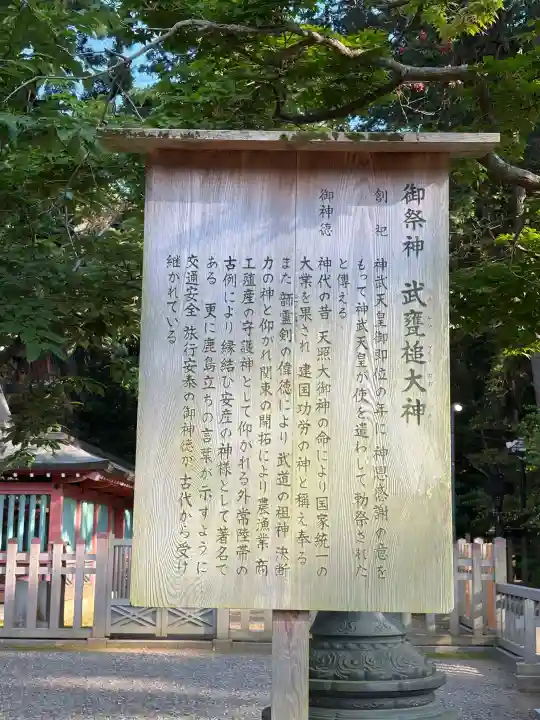 御祭神 武甕槌大神
創祀 神武天皇御即位の年に 神恩感謝の意を
もって神武天皇が使を遣わして勅祭された
と傳える
御神徳 神代の昔 天照大御神の命により国家統一の
大業を果され 建国功労の神と稱え奉る
また韴霊剣の偉徳により 武道の祖神 決断
力の神と仰がれ関東の開拓により 農漁業 商
工殖産の守護神として仰かれる外常陸帯の
古例により 縁結ひ安産の神様として著名で
ある 更に鹿島立ちの言葉が示すように
交通安全 旅行安泰の御神徳が 古代から受け
継かれている